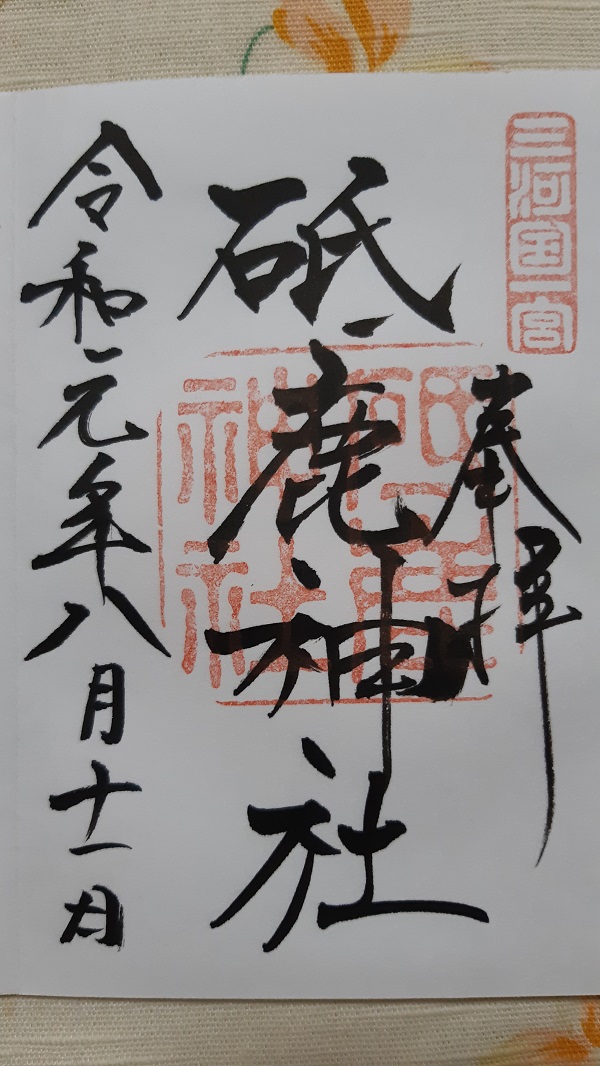 三河国一宮
奉拝
砥鹿神社
砥鹿神社
令和元年八月十一日